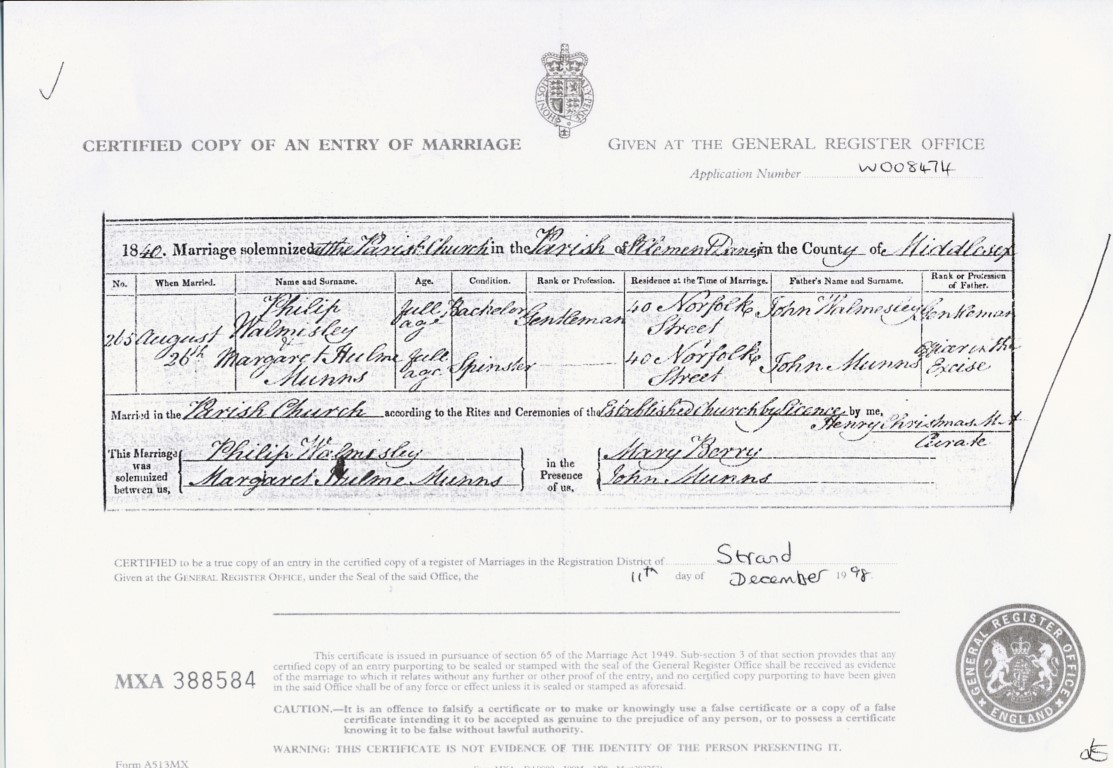 CERTIFIED COPY OF AN ENTRY OF MARRIAGE
GIVEN AT THE GENERAL REGISTER OFFICE
Application Number W008474
1840. Marriage solemnized at the Parish Church in the Parish of St Clement Danes in the County of Middlesex
No. When Married. Name and Surname. Age. Condition. Rank or Profession. Residence at the Time of Marriage. Father's Name and Surname. Rank or Profession of Father.
265 August 26th Philip Walmisley full age Bachelor Gentleman 40 Norfolk Street John Walmesley Gentleman
Margaret Hulme Munns full age Spinster 40 Norfolk Street John Munns Officer in the Excise
Married in the Parish Church according to the Rites and Ceremonies of the Established Church by Licence by me,
Henry Christmas M A
Curate
This Marriage was solemnized between us, Philip Walmisley in the Presence of us, Mary Berry
Margaret Hulme Munns John Munns
CERTIFIED to be a true copy of an entry in the certified copy of a register of Marriages in the Registration District of Strand
Given at the GENERAL REGISTER OFFICE, under the Seal of the said Office, the 11th day of December 1998
This certificate is issued in pursuance of section 65 of the Marriage Act 1949. Sub-section 3 of that section provides that any
certified copy of an entry purporting to be sealed or stamped with the seal of the General Register Office shall be received as evidence
of the marriage to which it relates without any further or other proof of the entry, and no certified copy purporting to have been given
in the said Office shall be of any force or effect unless it is sealed or stamped as aforesaid.
MXA 388584
CAUTION.—It is an offence to falsify a certificate or to make or knowingly use a false certificate or a copy of a false
certificate intending it to be accepted as genuine to the prejudice of any person, or to possess a certificate
knowing it to be false without lawful authority.
WARNING: THIS CERTIFICATE IS NOT EVIDENCE OF THE IDENTITY OF THE PERSON PRESENTING IT.
GENERAL REGISTER OFFICE
ENGLAND
Form A513MX